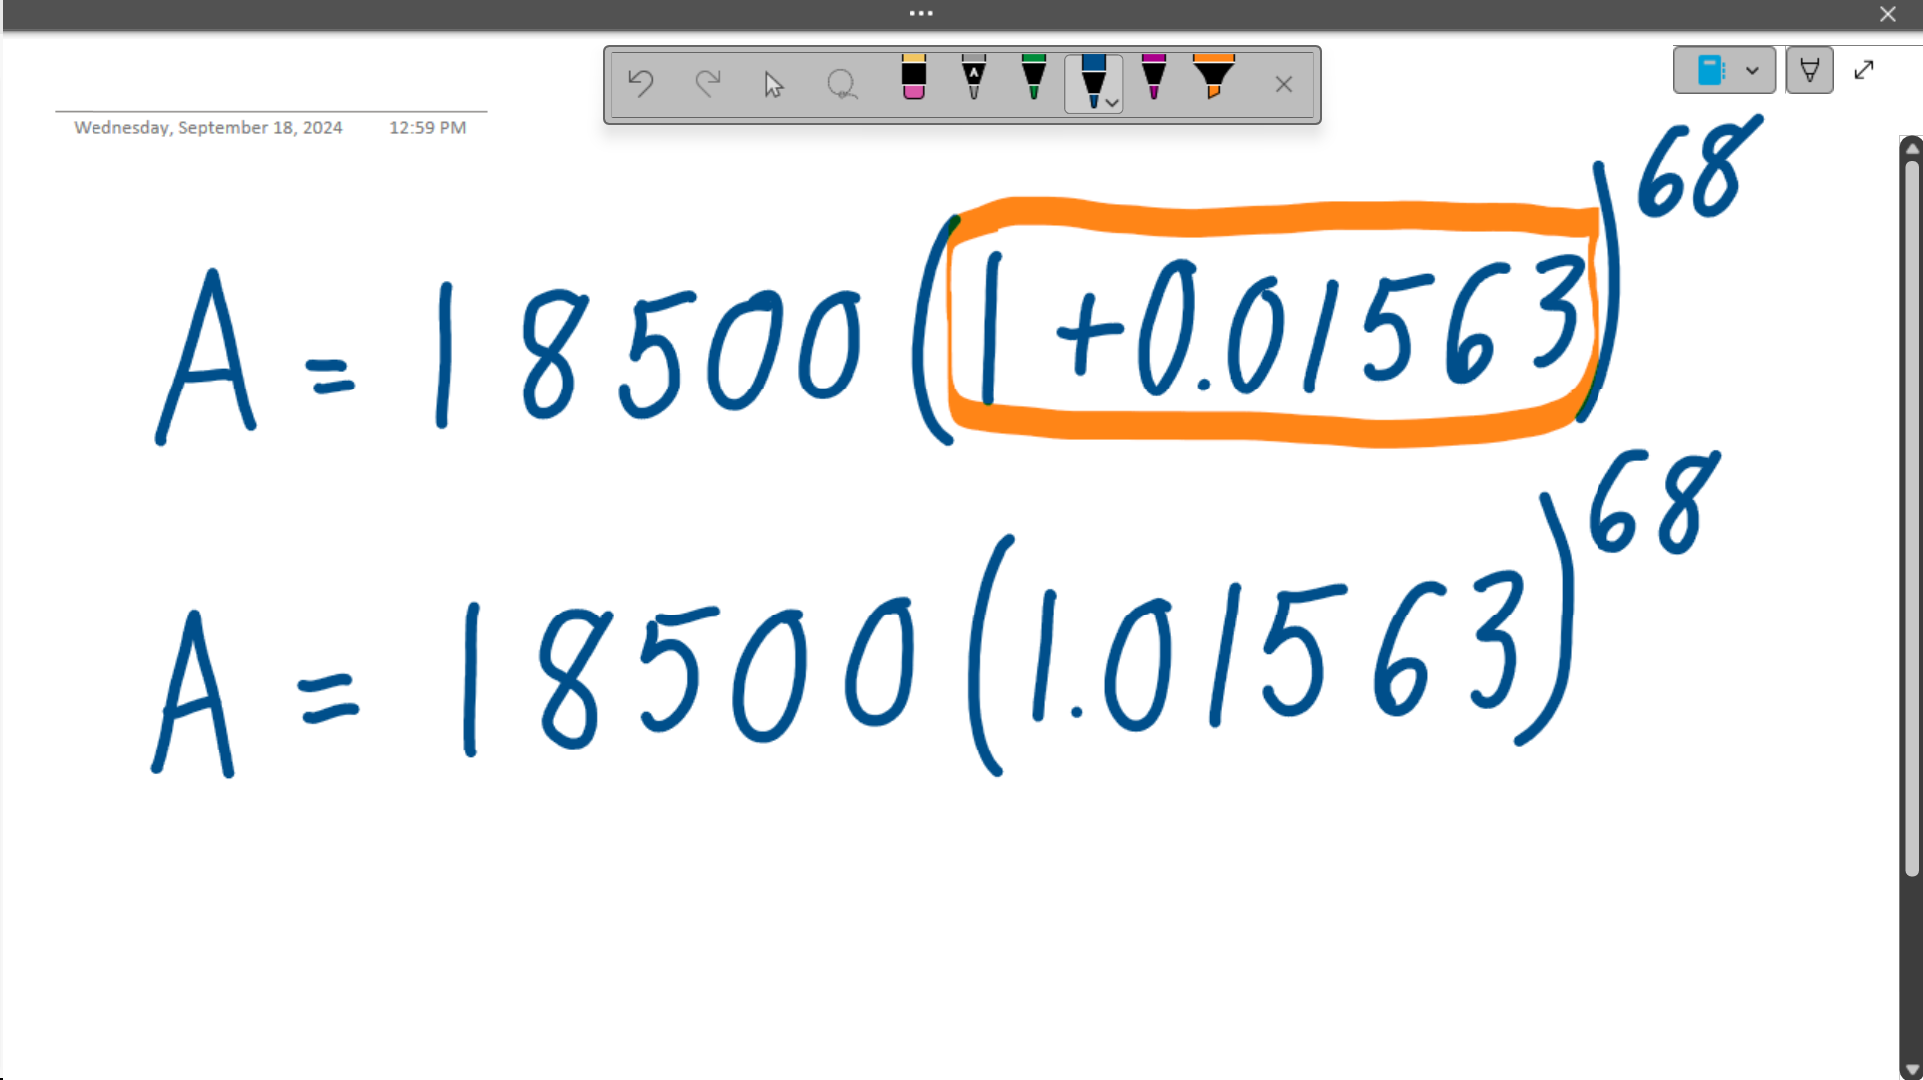 ...
Wednesday, September 18, 2024 12:59 PM
A = 18500(1+0.01563)^68
A = 18500(1.01563)^68